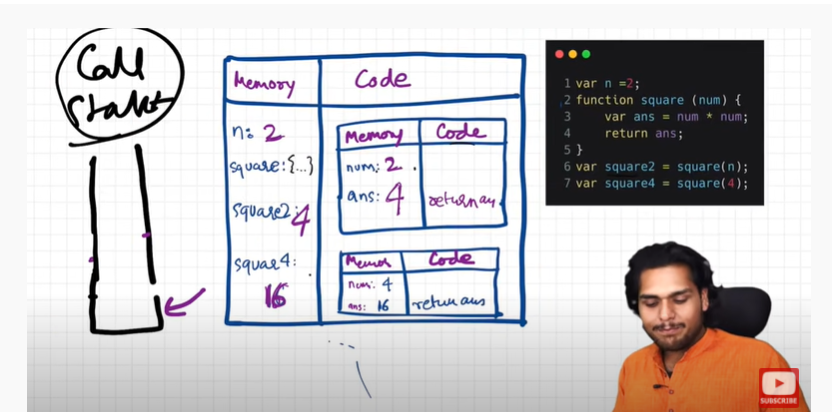 Call
Stake
Memory
Code
n: 2
square:{...}
square2: 4
squae4:
16
Memory
Code
num: 2
ans: 4
return an
Memor
Code
num: 4
ans: 16
return ans
1 var n =2;
2 function square (num) {
3 var ans = num * num;
4 return ans;
5 }
6 var square2 = square(n);
7 var square4 = square(4);
SUBSCRIBE